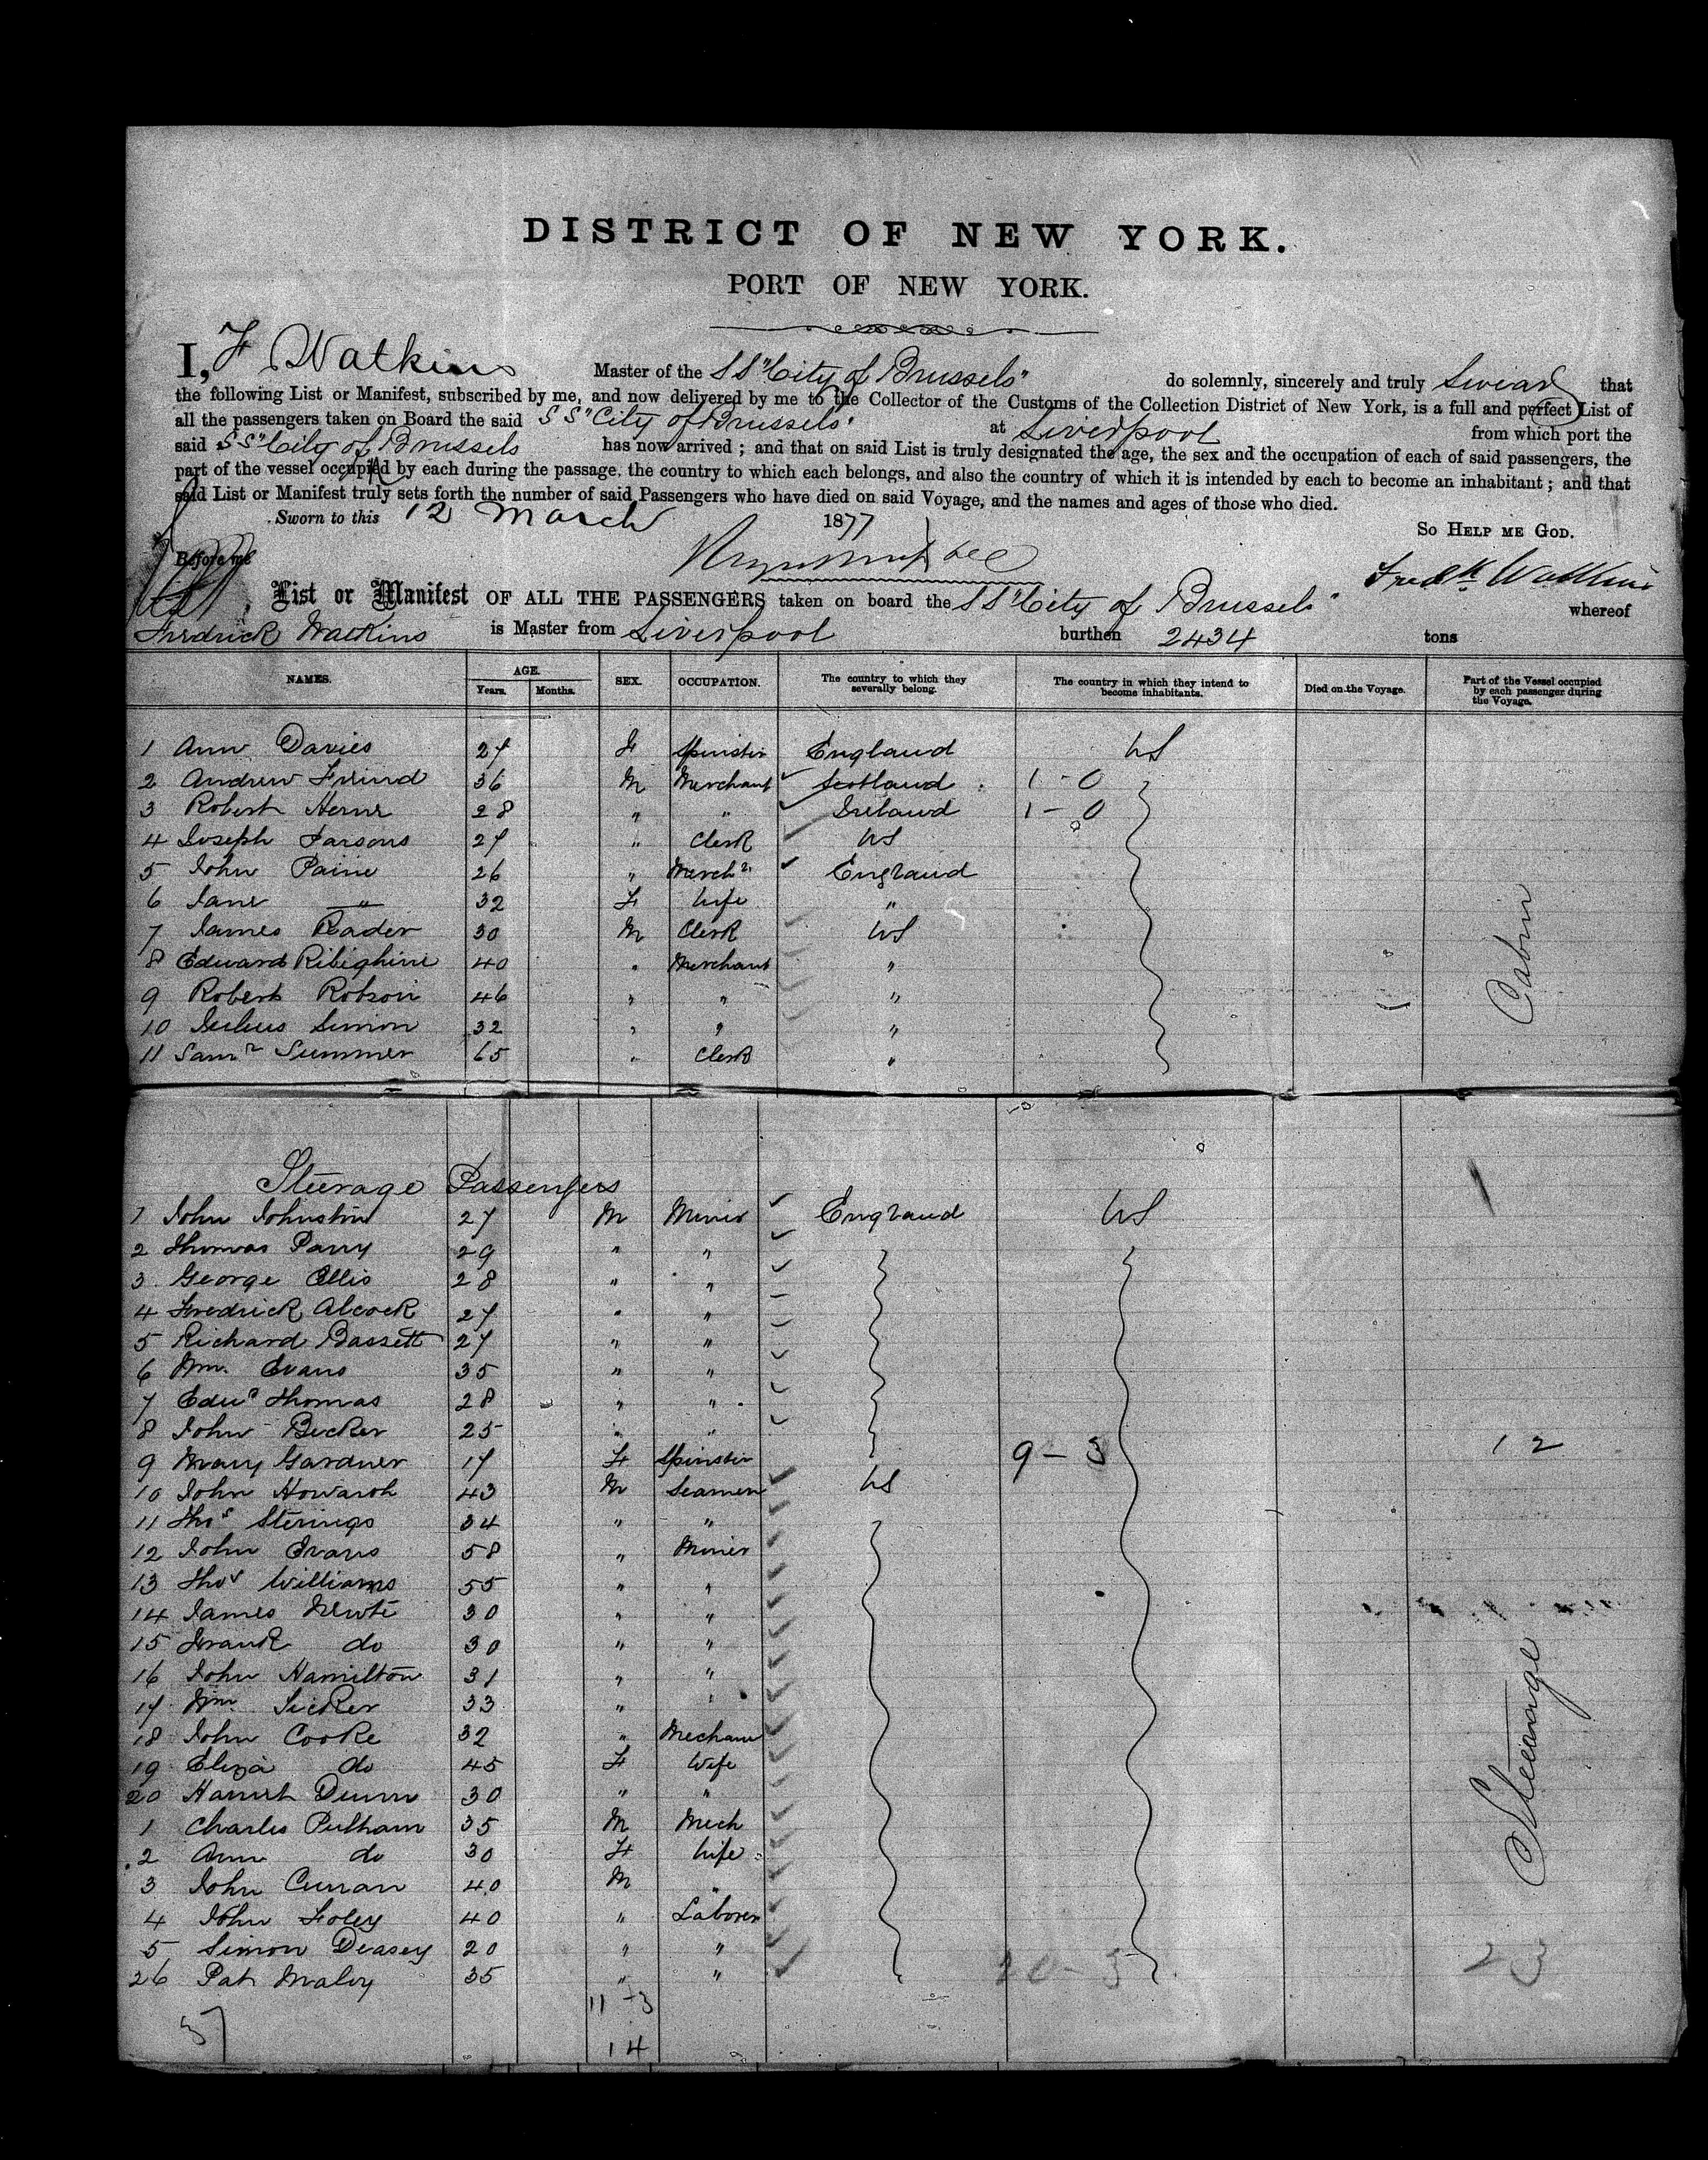 DISTRICT OF NEW YORK.
PORT OF NEW YORK.
I, F Watkins Master of the SS "City of Brussels" do solemnly, sincerely and truly Swear that
the following List or Manifest, subscribed by me, and now delivered by me to the Collector of the Customs of the Collection District of New York, is a full and perfect List of
all the passengers taken on Board the said SS "City of Brussels" at Liverpool from which port the
said SS "City of Brussels has now arrived ; and that on said List is truly designated the age, the sex and the occupation of each of said passengers, the
part of the vessel occupied by each during the passage, the country to which each belongs, and also the country of which it is intended by each to become an inhabitant ; and that
said List or Manifest truly sets forth the number of said Passengers who have died on said Voyage, and the names and ages of those who died.
Sworn to this 12 March 1877 So HELP ME GOD.
Before me Fredk Watkins
List or Manifest OF ALL THE PASSENGERS taken on board the SS "City of Brussels" whereof
Fredrick Watkins is Master from Liverpool burthen 2434 tons
NAMES. AGE. Years. Months. SEX. OCCUPATION. The country to which they severally belong. The country in which they intend to become inhabitants. Died on the Voyage. Part of the Vessel occupied by each passenger during the Voyage.
1 Ann Davies 27 F Spinster England US
2 Andrew Friend 36 M Merchant Scotland 1 - 0
3 Robert 28 " " Ireland 1 - 0
4 Joseph Parsons 27 " Clerk US
5 John Paine 26 " March England
6 Jane " 32 F Wife "
7 James Rader 30 M Clerk US
8 Edward 40 " Merchant "
9 Robert Robson 46 " " "
10 Julius Simon 32 " " "
11 Saml Summer 65 " Clerk "
Cabin
Steerage Passengers
1 John Johnston 27 M Miner England US
2 Thomas Parry 29 " "
3 George Ellis 28 " "
4 Fredrick Alcock 27 " "
5 Richard Bassett 27 " "
6 Wm. Evans 35 " "
7 Edwd Thomas 28 " "
8 John Becker 25 " "
9 Mary Gardner 17 F Spinster 9 - 3 12
10 John Howarth 43 M Seamen US
11 Thos Sterings 34 " "
12 John Evans 58 " Miner
13 Thos Williams 55 " "
14 James Newte 30 " "
15 Frank do 30 " "
16 John Hamilton 31 " "
17 Wm. 33 " "
18 John Cooke 32 " Mechanic
19 Eliza do 45 F Wife
20 Harriet Dunn 30 " "
1 Charles Pulham 35 M Mech
2 Ann do 30 F Wife
3 John Curran 40 M "
4 John Foley 40 " Laborer
5 Simon Deasey 20 " "
26 Pat Maley 35 " " 20 - 3 23
Steerage
11 - 3
37
14